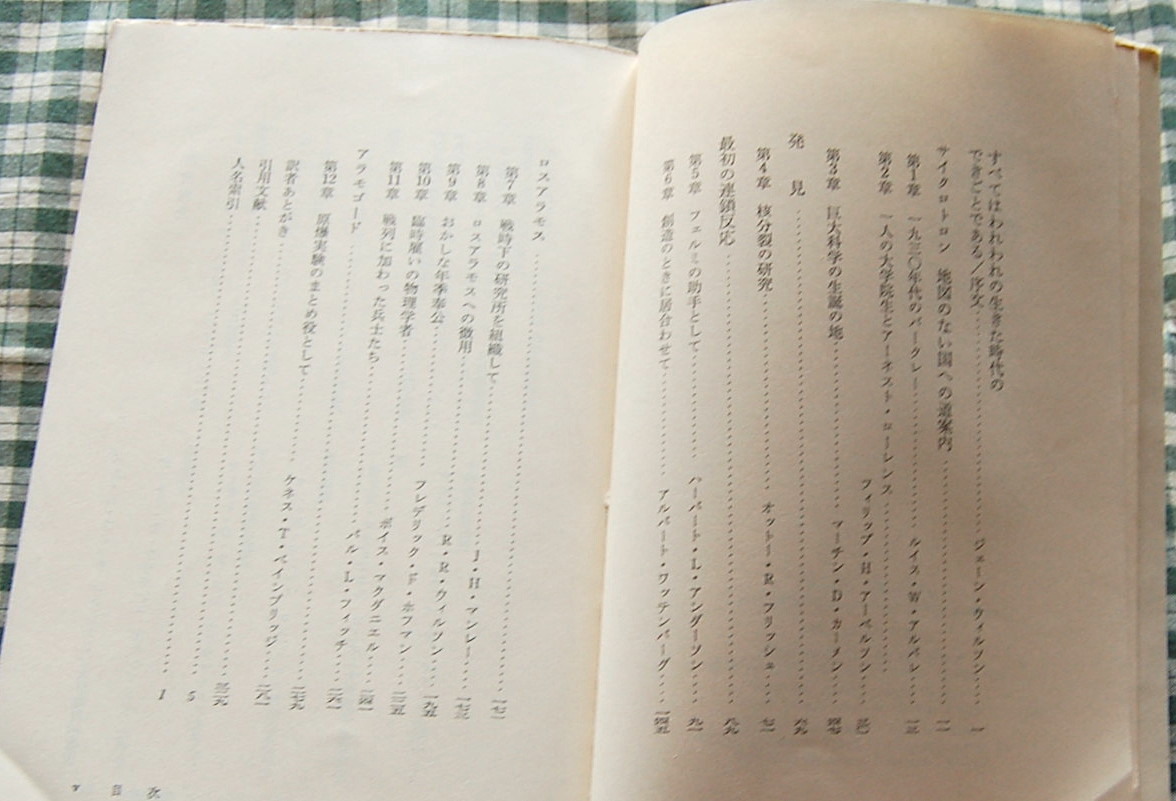 すべてはわれわれの生きた時代の
できごとである／序文……ジェーン・ウィルソン……一
サイクロトロン　地図のない国への道案内……一一
第1章　一九三〇年代のバークレー……ルイス・W・アルバレ……一三
第2章　一人の大学院生とアーネスト・ローレンス……フィリップ・H・アーベルソン……三〇
第3章　巨大科学の生誕の地……マーチン・D・カーメン……四七
発見……六九
第4章　核分裂の研究……オットー・R・フリッシュ……七一
最初の連鎖反応……八九
第5章　フェルミの助手として……ハーバート・L・アンダーソン……九一
第6章　創造のときに居合わせて……アルバート・ワッテンバーグ……一四五
ロスアラモス……一七一
第7章　戦時下の研究所を組織して……J・H・マンレー……一七三
第8章　ロスアラモスへの徴用……R・R・ウィルソン……一九五
第9章　おかしな年季奉公……フレデリック・F・ホフマン……二二五
第10章　臨時雇いの物理学者……ボイス・マクダニエル……二四一
第11章　戦列に加わった兵士たち……バル・L・フィッチ……二六一
アラモゴード……二七九
第12章　原爆実験のまとめ役として……ケネス・T・ベインブリッジ……二八一
訳者あとがき……三一九
引用文献……5
人名索引……1
v　目次